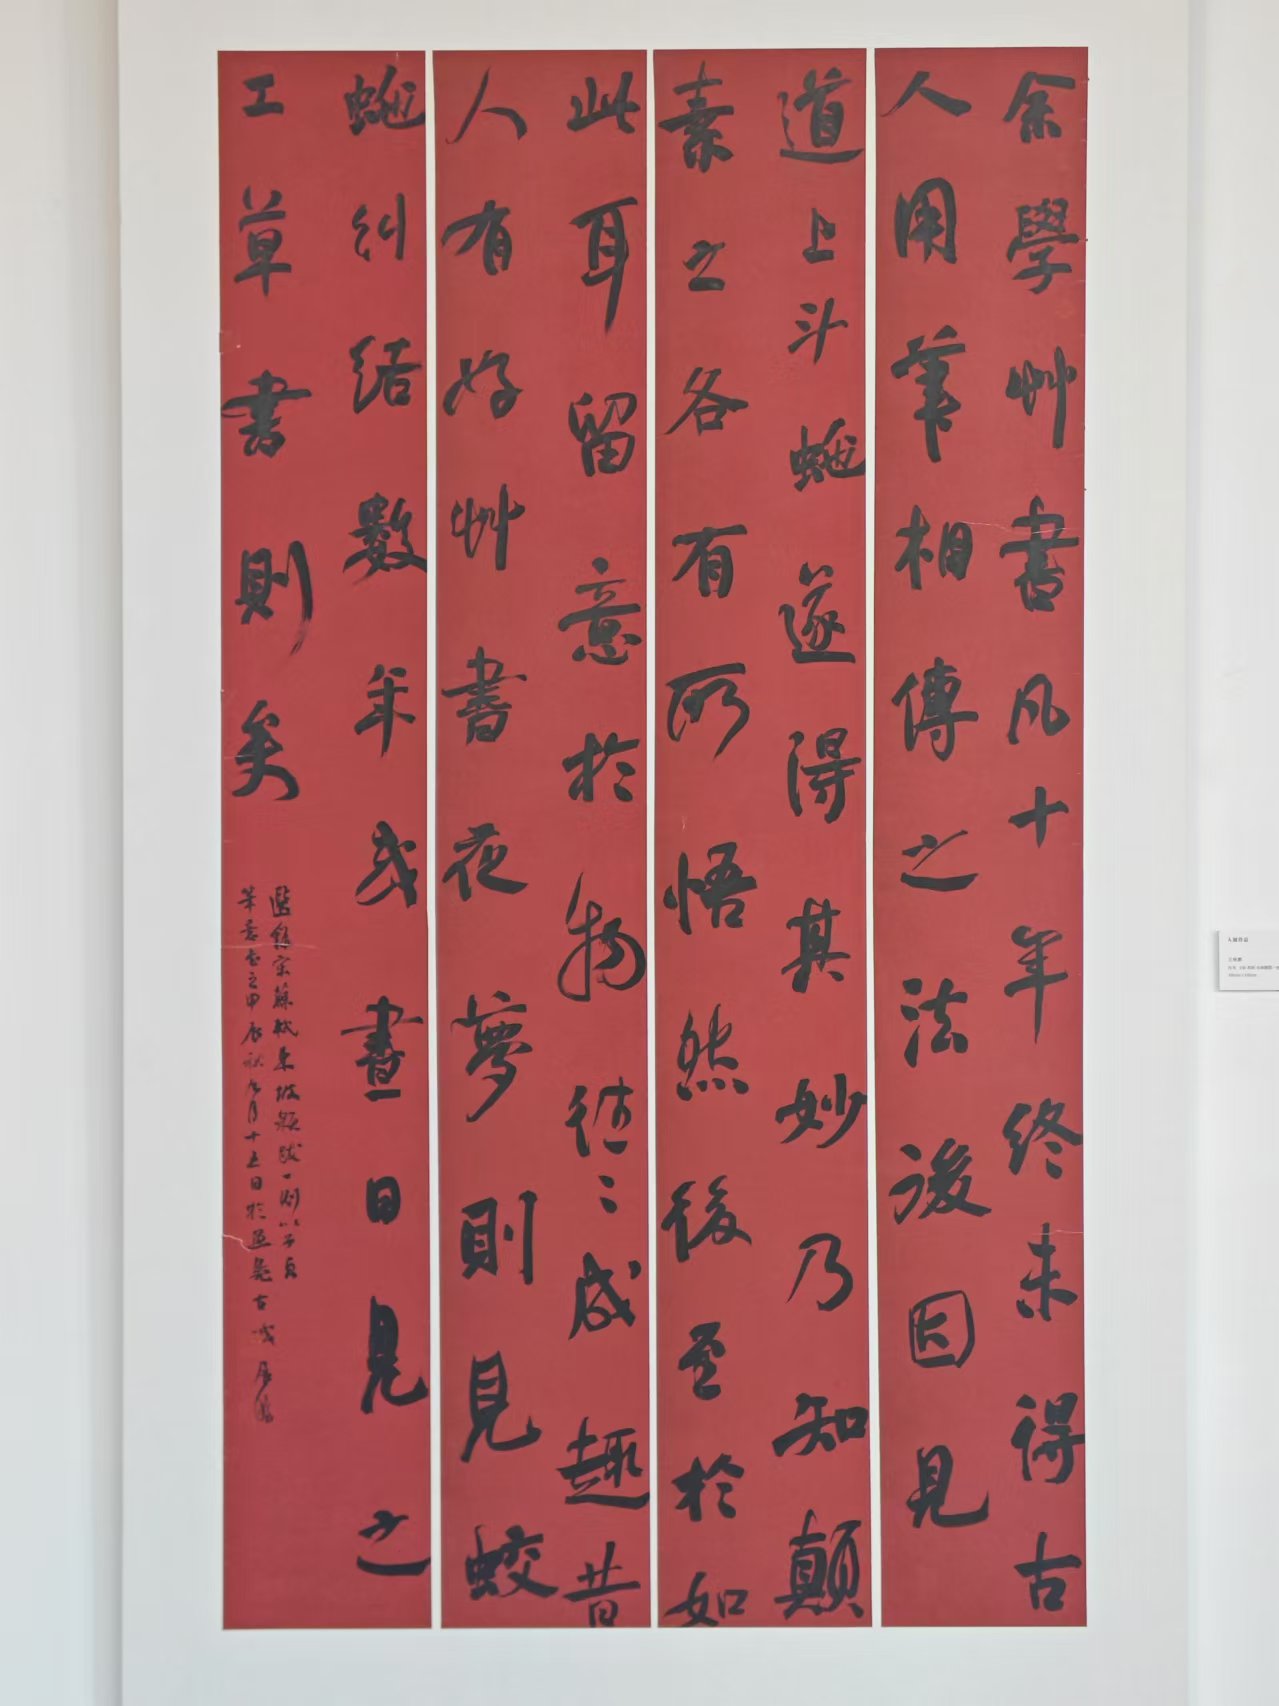 余學艸書凡十年終未得古
人用筆相傳之法後因見
道上斗虵遂得其妙乃知顛
素之各有所悟然後至於如
此耳留意於物往〻成趣昔
人有好艸書夜夢則見蛟
虵糾結數年或晝日見之
工草書則矣
宋蘇軾東坡題跋一則以
筆意書之甲辰秋九月十五日於 古城
入展作品